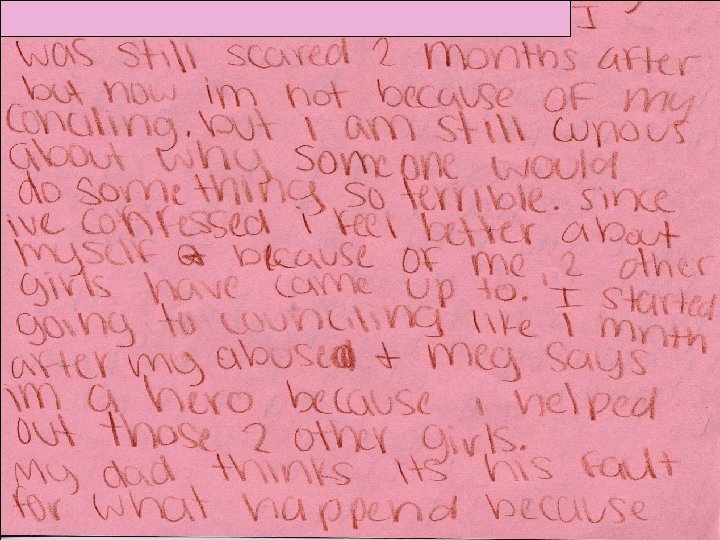 I
was still scared 2 months after
but now im not because of my
conciling. but i am still curious
about why someone would
do something so terrible. since
ive confessed i feel better about
myself & because of me, 2 other
girls have came up to. I started
going to counciling like 1 mnth
after my abuse + meg says
im a hero because i helped
out those 2 other girls.
my dad thinks its his fault
for what happend because